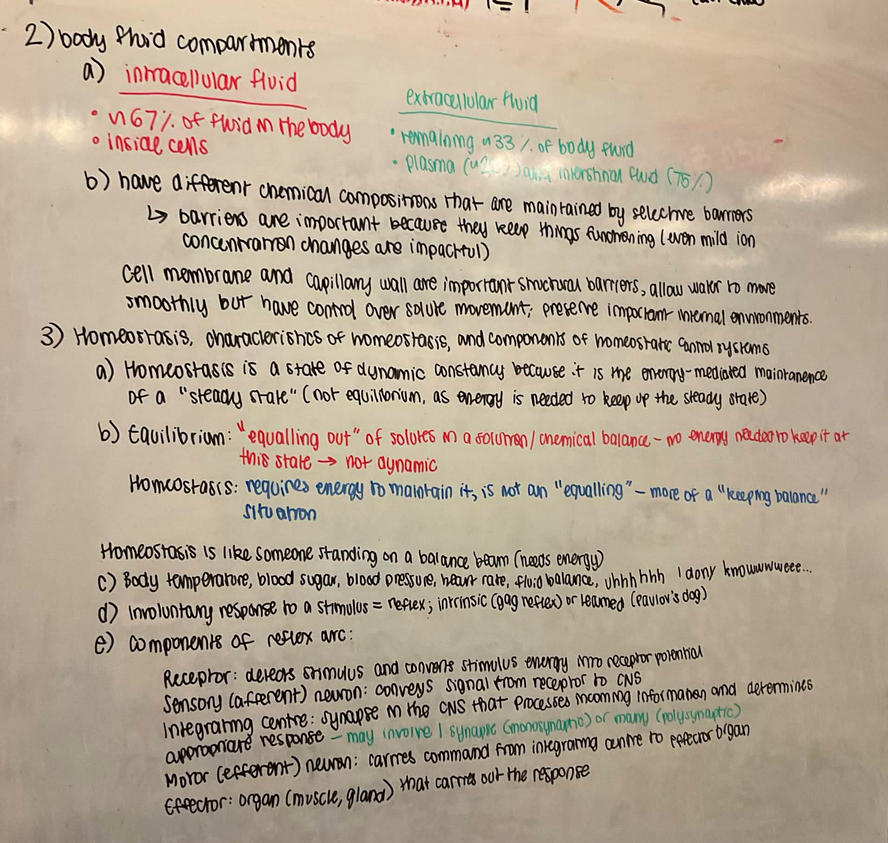 2) body fluid compartments
a) intracellular fluid
• ~67% of fluid in the body
• inside cells
extracellular fluid
• remaining ~33% of body fluid
• plasma and interstitial fluid (75%)
b) have different chemical compositions that are maintained by selective barriers
↳ barriers are important because they keep things functioning (even mild ion
concentration changes are impactful)
Cell membrane and capillary wall are important structural barriers, allow water to move
smoothly but have control over solute movement; preserve important internal environments.
3) Homeostasis, characteristics of homeostasis, and components of homeostatic control systems
a) Homeostasis is a state of dynamic constancy because it is the energy-mediated maintanence
of a "steady state" (not equilibrium, as energy is needed to keep up the steady state)
b) Equilibrium: "equalling out" of solutes in a solution/chemical balance – no energy needed to keep it at
this state → not dynamic
Homeostasis: requires energy to maintain it, is not an "equalling" – more of a "keeping balance"
situation
Homeostasis is like someone standing on a balance beam (needs energy)
c) Body temperature, blood sugar, blood pressure, heart rate, fluid balance, uhhhhhh I dony knowwwweee...
d) Involuntary response to a stimulus = reflex; intrinsic (gag reflex) or learned (pavlov's dog)
e) Components of reflex arc:
Receptor: detects stimulus and converts stimulus energy into receptor potential
Sensory (afferent) neuron: conveys signal from receptor to CNS
Integrating centre: synapse in the CNS that processes incoming information and determines
appropriate response – may involve 1 synapse (monosynaptic) or many (polysynaptic)
Motor (efferent) neuron: carries command from integrating centre to effector organ
Effector: organ (muscle, gland) that carries out the response